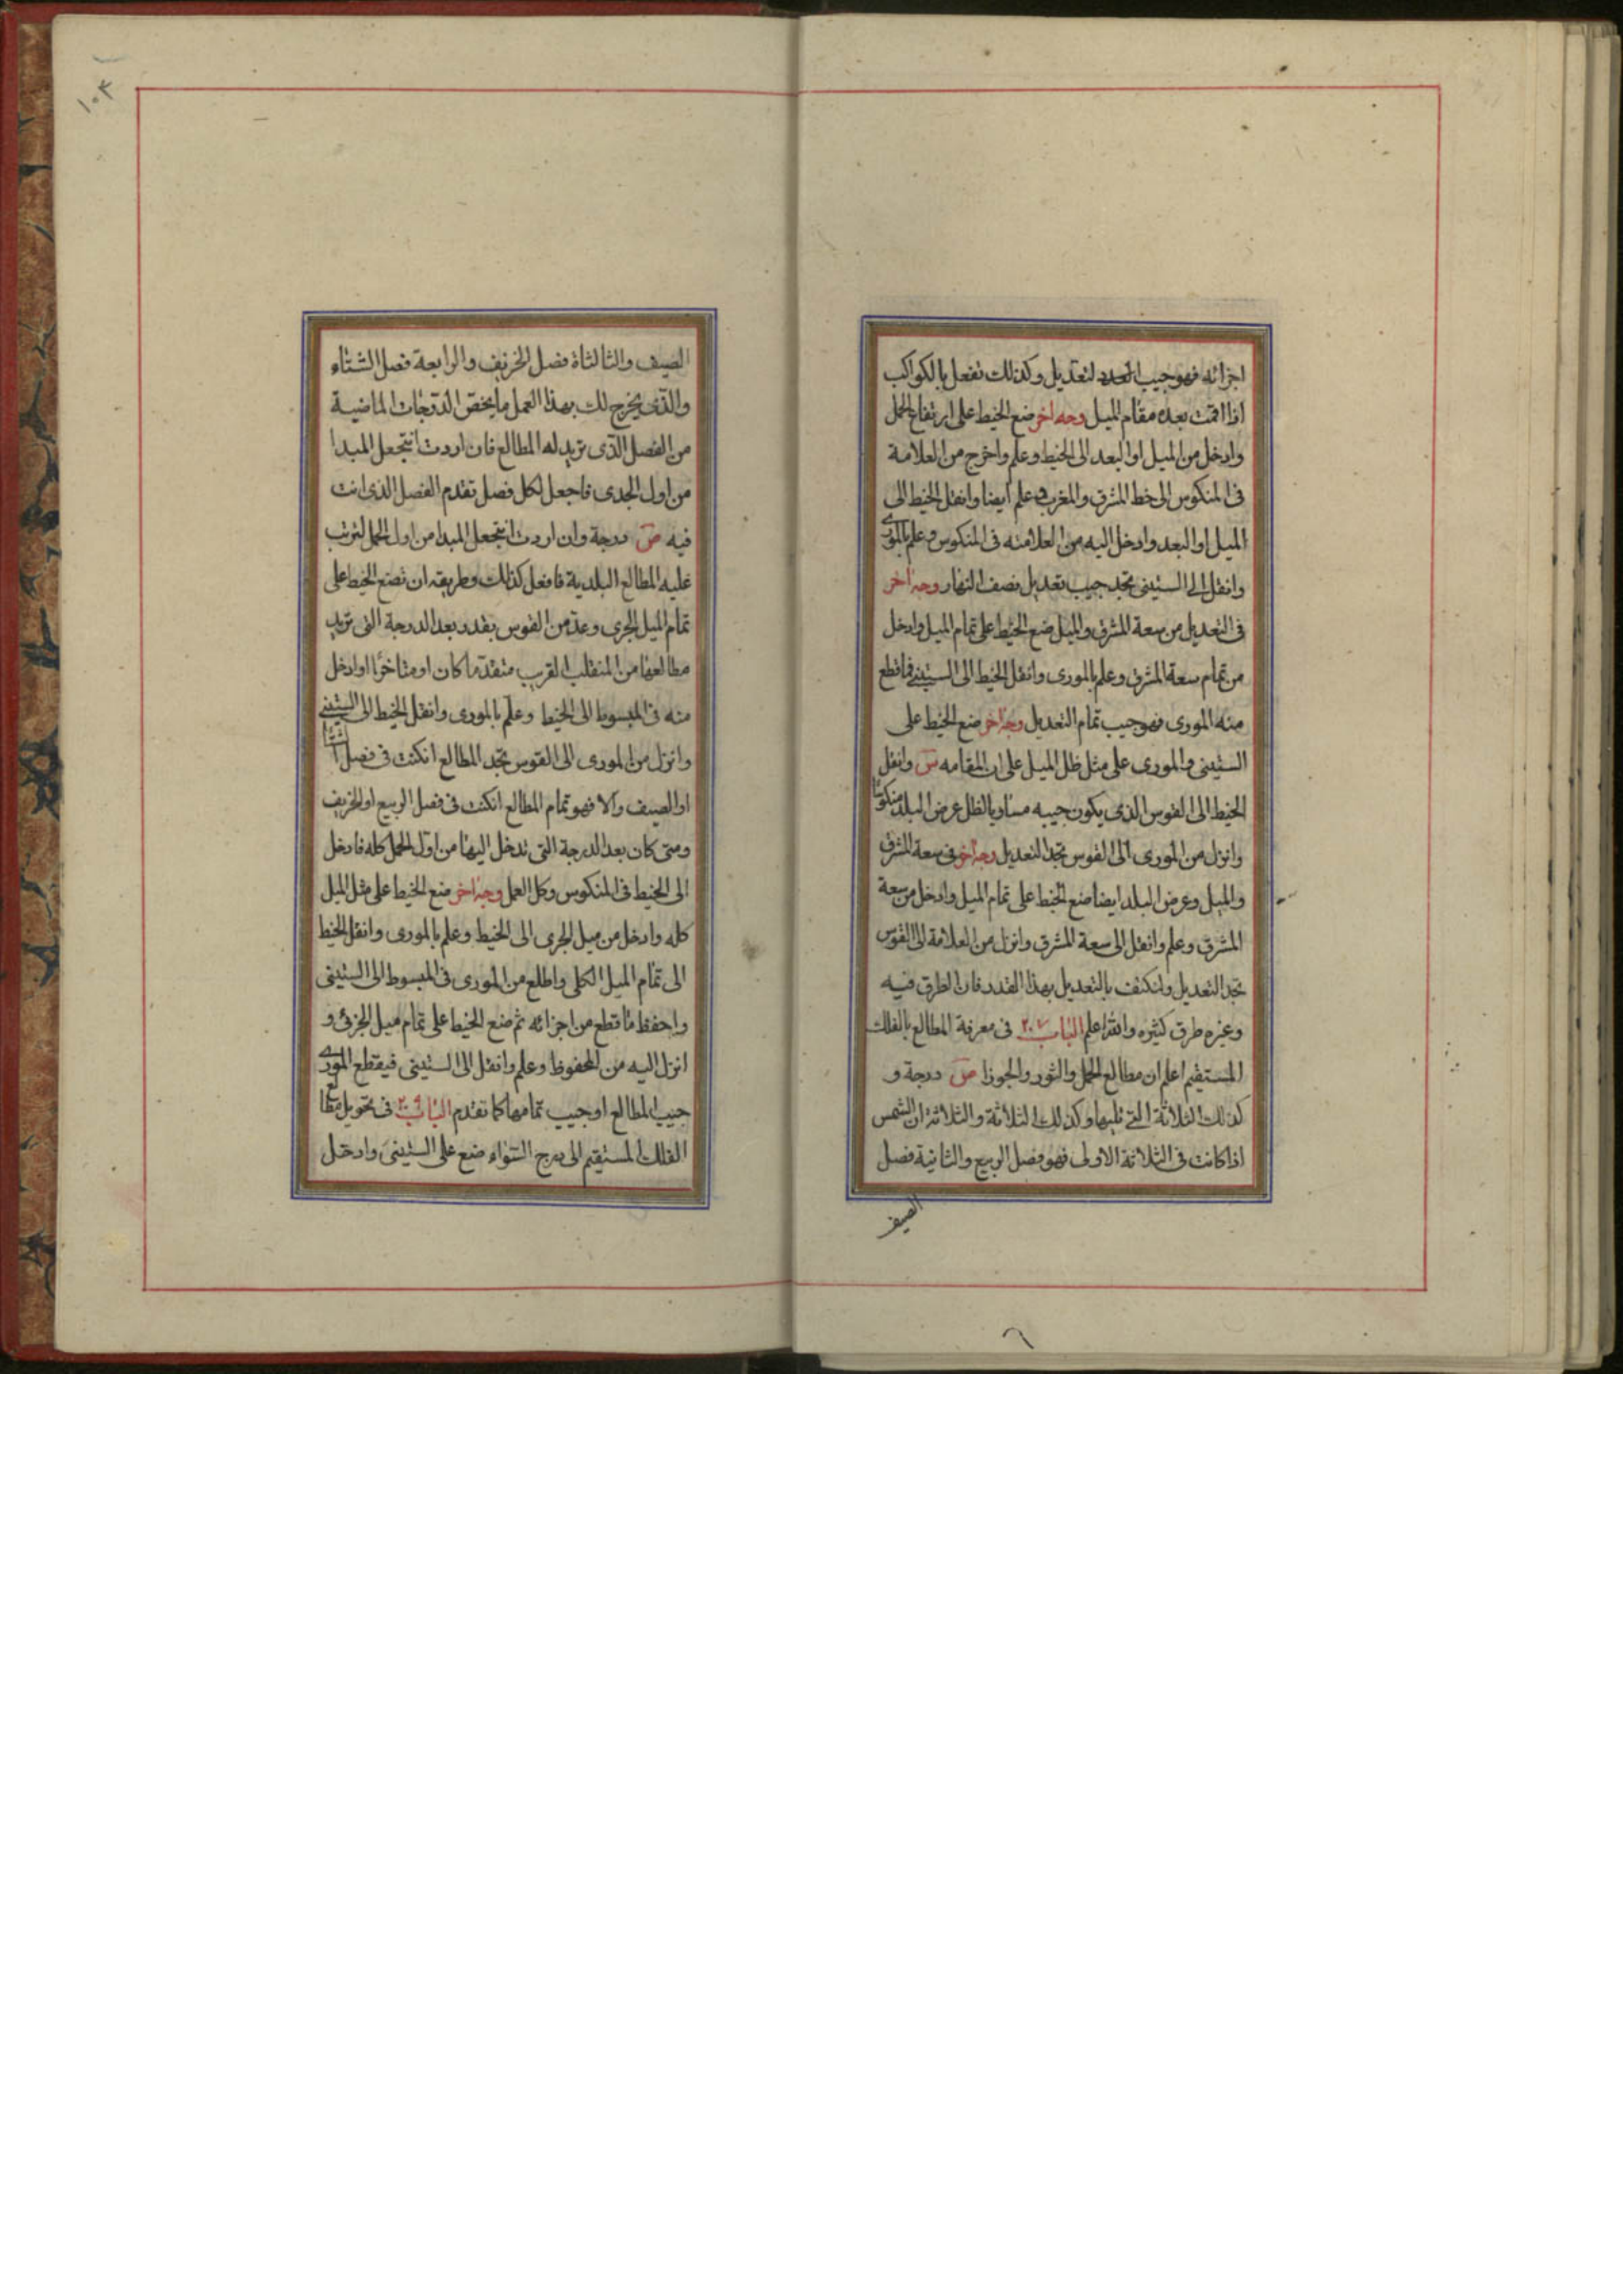 اجزائه فهو جيب العدد لتعديل وكذلك تفعل بالكواكب
اذا اقمت بعده مقام الميل وجه اخر ضع الخيط على ارتفاع الحمل
وادخل من الميل او البعد الى الخيط وعلم واخرج من العلامة
فى المنكوس الى خط المشرق والمغرب وعلم ايضا وانقل الخيط الى
الميل او البعد وادخل اليه من العلامته فى المنكوس وعلم بالمورى
وانقل الى الستينى تجد جيب تعديل نصف النهار وجه اخر
فى التعديل من سعة المشرق والميل ضع الخيط على تمام الميل وادخل
من تمام سعة المشرق وعلم بالمورى وانقل الخيط الى الستينى فما قطع
منه المورى فهو جيب تمام التعديل وجه اخر ضع الخيط على
الستينى والمورى على مثل ظل الميل على ان المقامه س وانقل
الخيط الى القوس الذى يكون جيبه مساويا لظل عرض البلد منكوسا
وانزل من المورى الى القوس تجد التعديل وجه اخر فى سعة المشرق
والميل وعرض البلد ايضا ضع الخيط على تمام الميل وادخل من سعة
المشرق وعلم وانقل الى سعة المشرق وانزل من العلامة الى القوس
تجد التعديل ولنكتف بالتعديل بهذا القدر فان الطرق فيه
وغيره طرق كثيره والله اعلم الباب ٢٠٧ فى معرفة المطالع بالفلك
المستقيم اعلم ان مطالع الحمل والثور والجوزا ص درجة و
كذلك الثلاثة التى تليها وكذلك الثلاثة والثلاثة ان الشمس
اذا كانت فى الثلاثة الاولى فهو فصل الربيع والثانية فصل
الصيف
١٠٣
الصيف والثالثاة فصل الخريف والرابعة فصل الشتاء
والذى يخرج لك بهذا العمل ما يخص الدرجات الماضية
من الفصل الذى تريد له المطالع فان اردت ان تجعل المبدا
من اول الجدى فاجعل لكل فصل تقدم الفصل الذى انت
فيه ص درجة وان اردت ان تجعل المبدا من اول الحمل لترتب
عليه المطالع البلدية فافعل كذلك وطريقه ان تضع الخيط على
تمام الميل الجزى وعد من القوس بقدر بعد الدرجة التى تريد
مطالعها من المنقلب القريب متقدما كان او متاخرا وادخل
منه فى المبسوط الى الخيط وعلم بالمورى وانقل الخيط الى الستينى
وانزل من المورى الى القوس تجد المطالع ان كنت فى فصل الشتا
او الصيف والا فهو تمام المطالع ان كنت فى فصل الربيع او الخريف
ومتى كان بعد الدرجة التى تدخل اليها من اول الحمل كله فادخل
الى الخيط فى المنكوس وكل العمل وجه اخر ضع الخيط على مثل الميل
كله وادخل من ميل الجزى الى الخيط وعلم بالمورى وانقل الخيط
الى تمام الميل الكلى واطلع من المورى فى المبسوط الى الستينى
واحفظ ما قطع من اجزائه ثم ضع الخيط على تمام ميل الجزئى و
انزل اليه من المحفوظ وعلم وانقل الى الستينى فيقطع المورى
جيب المطالع او جيب تمامها كما تقدم الباب ٢٠٩ فى تحويل مطالع
الفلك المستقيم الى درج السواء ضع على الستينى وادخل